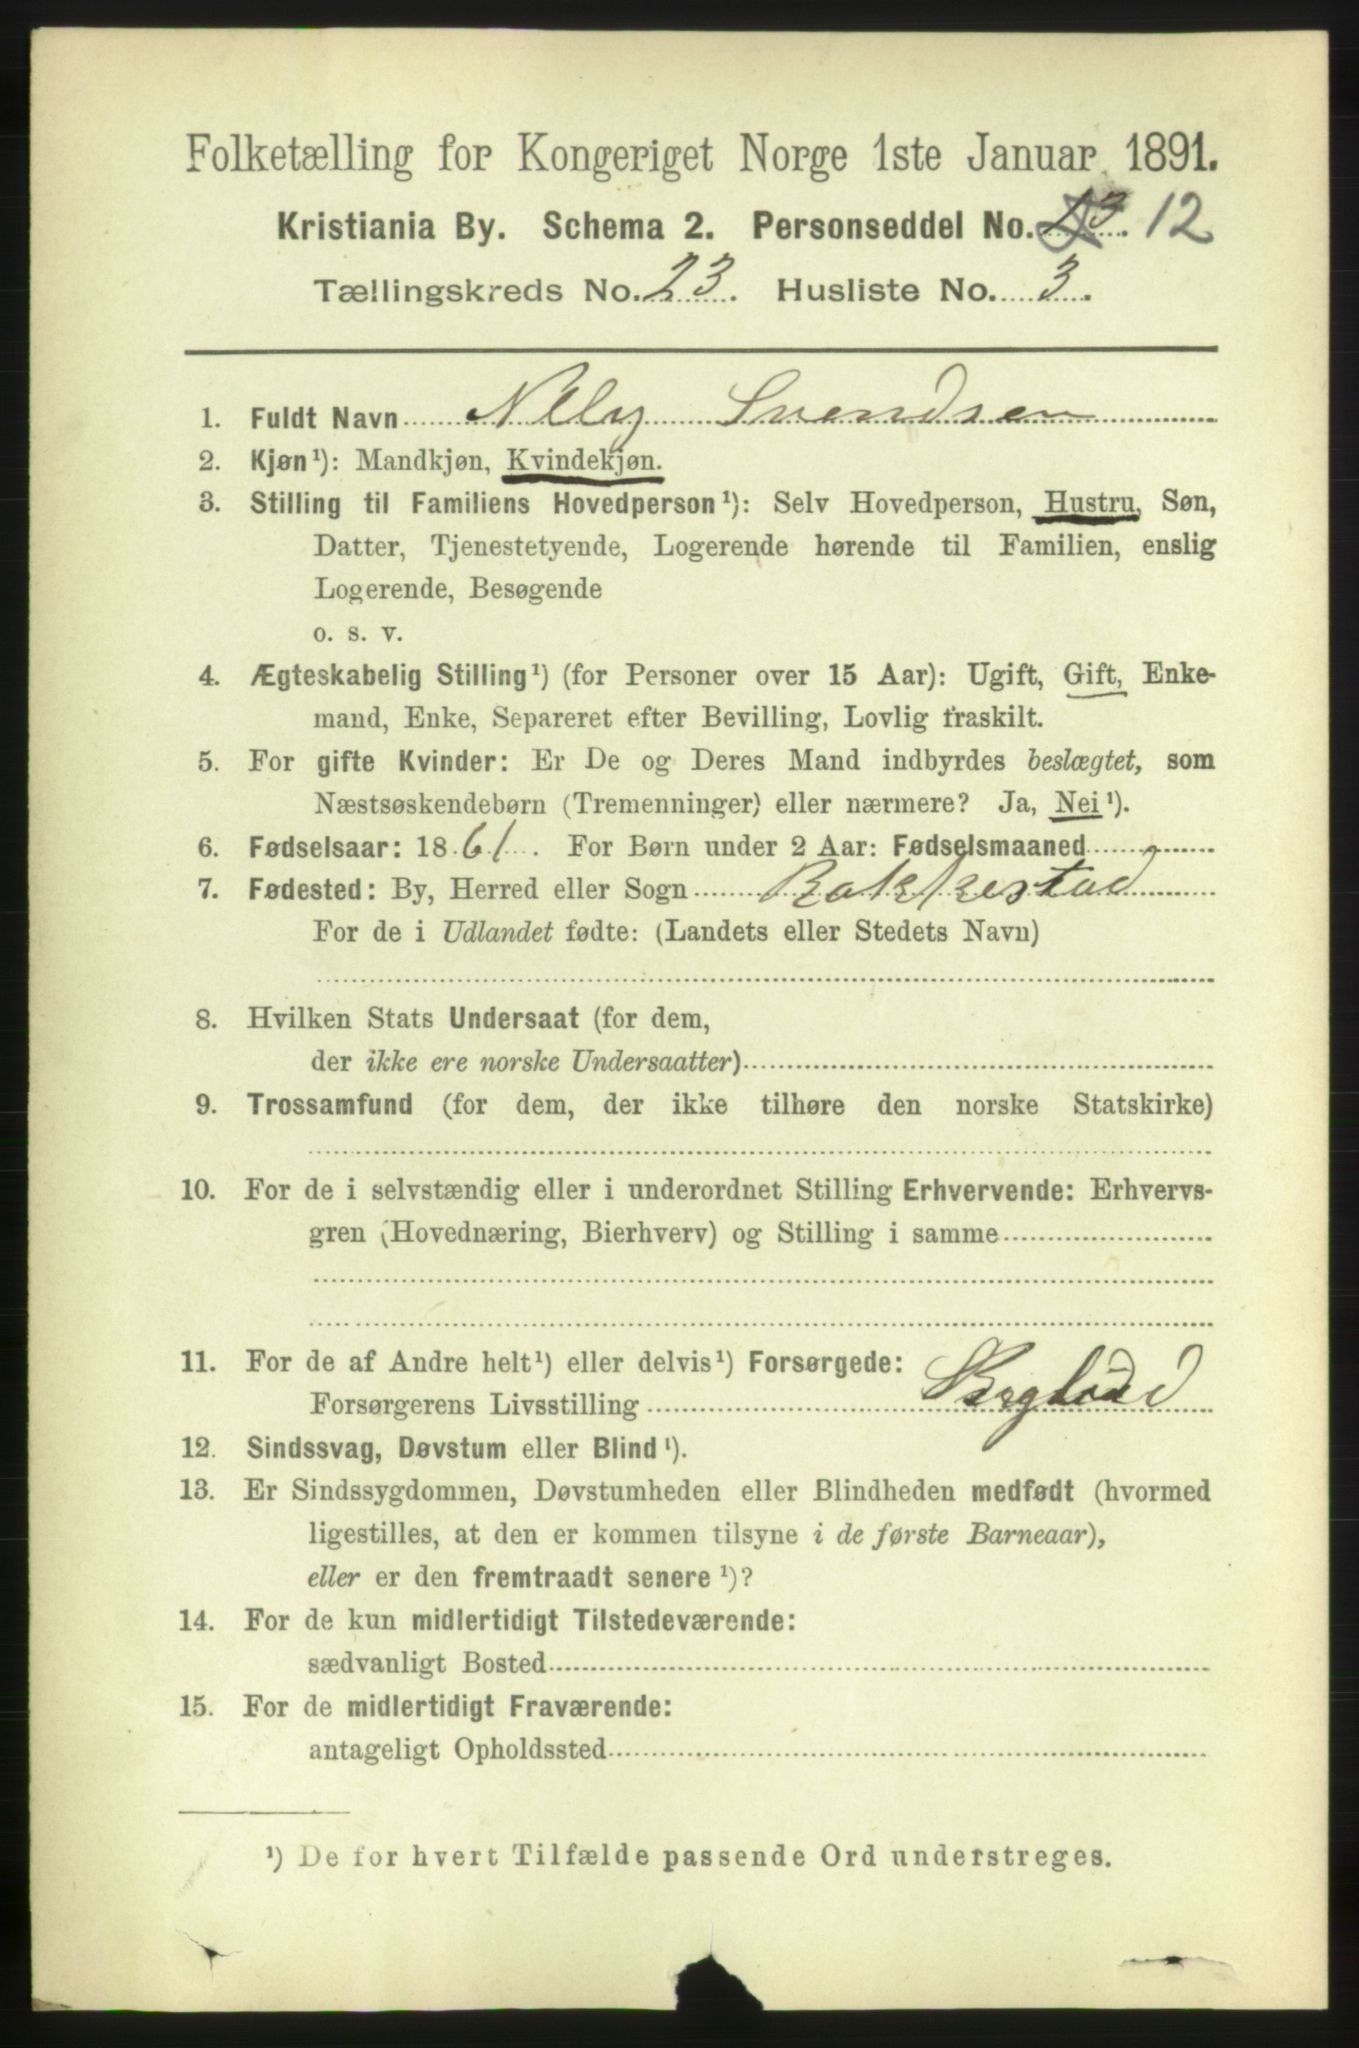 Folketælling for Kongeriget Norge 1ste Januar 1891.
Kristiania By. Schema 2. Personseddel No. 12
Tællingskreds No. 23. Husliste No. 3.
1. Fuldt Navn Nely Svendsen
2. Kjøn¹): Mandkjøn, Kvindekjøn.
3. Stilling til Familiens Hovedperson¹): Selv Hovedperson, Hustru, Søn,
Datter, Tjenestetyende, Logerende hørende til Familien, enslig
Logerende, Besøgende
o. s. v.
4. Ægteskabelig Stilling¹) (for Personer over 15 Aar): Ugift, Gift, Enke-
mand, Enke, Separeret efter Bevilling, Lovlig fraskilt.
5. For gifte Kvinder: Er De og Deres Mand indbyrdes beslægtet, som
Næstsøskendebørn (Tremenninger) eller nærmere? Ja, Nei¹).
6. Fødselsaar: 1861. For Børn under 2 Aar: Fødselsmaaned
7. Fødested: By, Herred eller Sogn Rakkestad
For de i Udlandet fødte: (Landets eller Stedets Navn)
8. Hvilken Stats Undersaat (for dem,
der ikke ere norske Undersaatter)
9. Trossamfund (for dem, der ikke tilhøre den norske Statskirke)
10. For de i selvstændig eller i underordnet Stilling Erhvervende: Erhvervs-
gren (Hovednæring, Bierhverv) og Stilling i samme
11. For de af Andre helt¹) eller delvis¹) Forsørgede:
Forsørgerens Livsstilling
12. Sindssvag, Døvstum eller Blind¹).
13. Er Sindssygdommen, Døvstumheden eller Blindheden medfødt (hvormed
ligestilles, at den er kommen tilsyne i de første Barneaar),
eller er den fremtraadt senere¹)?
14. For de kun midlertidigt Tilstedeværende:
sædvanligt Bosted
15. For de midlertidigt Fraværende:
antageligt Opholdssted
¹) De for hvert Tilfælde passende Ord understreges.